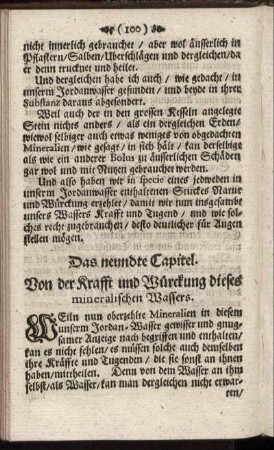 (100)
nicht innerlich gebrauchet / aber wol äusserlich in
Pflastern / Salben / Uberschlägen und dergleichen / da
er denn trucknet und heilet.
Und dergleichen habe ich auch / wie gedacht / in
unserm Jordanwasser gefunden / und beyde in ihrer
Substanz daraus abgesondert.
Weil auch der in den grossen Kesseln angelegte
Stein nichts anders / als ein dergleichen Erden /
wiewol selbiger auch etwas weniges von obgedachten
Mineralien / wie gesagt / in sich hält / kan derselbige
als wie ein anderer Bolus zu äusserlichen Schäden
gar wol und mit Nutzen gebrauchet werden.
Und also haben wir in specie eines jedweden in
unserm Jordanwasser enthaltenen Stuckes Natur
und Würckung erzehlet / damit wir nun insgesambt
unsers Wassers Krafft und Tugend / und wie sol-
ches recht zugebrauchen / desto deutlicher für Augen
stellen mögen.
Das neundte Capitel.
Von der Krafft und Würckung dieses
mineralischen Wassers.
WEiln nun oberzehlte Mineralien in diesem
unserm Jordan-Wasser gewisser und gnug-
samer Anzeige nach begriffen und enthalten /
kan es nicht fehlen / es müssen solche auch demselben
ihre Kräffte und Tugenden / die sie sonst an ihnen
haben / mittheilen. Denn von dem Wasser an ihm
selbst / als Wasser / kan man dergleichen nicht erwar-
ten /